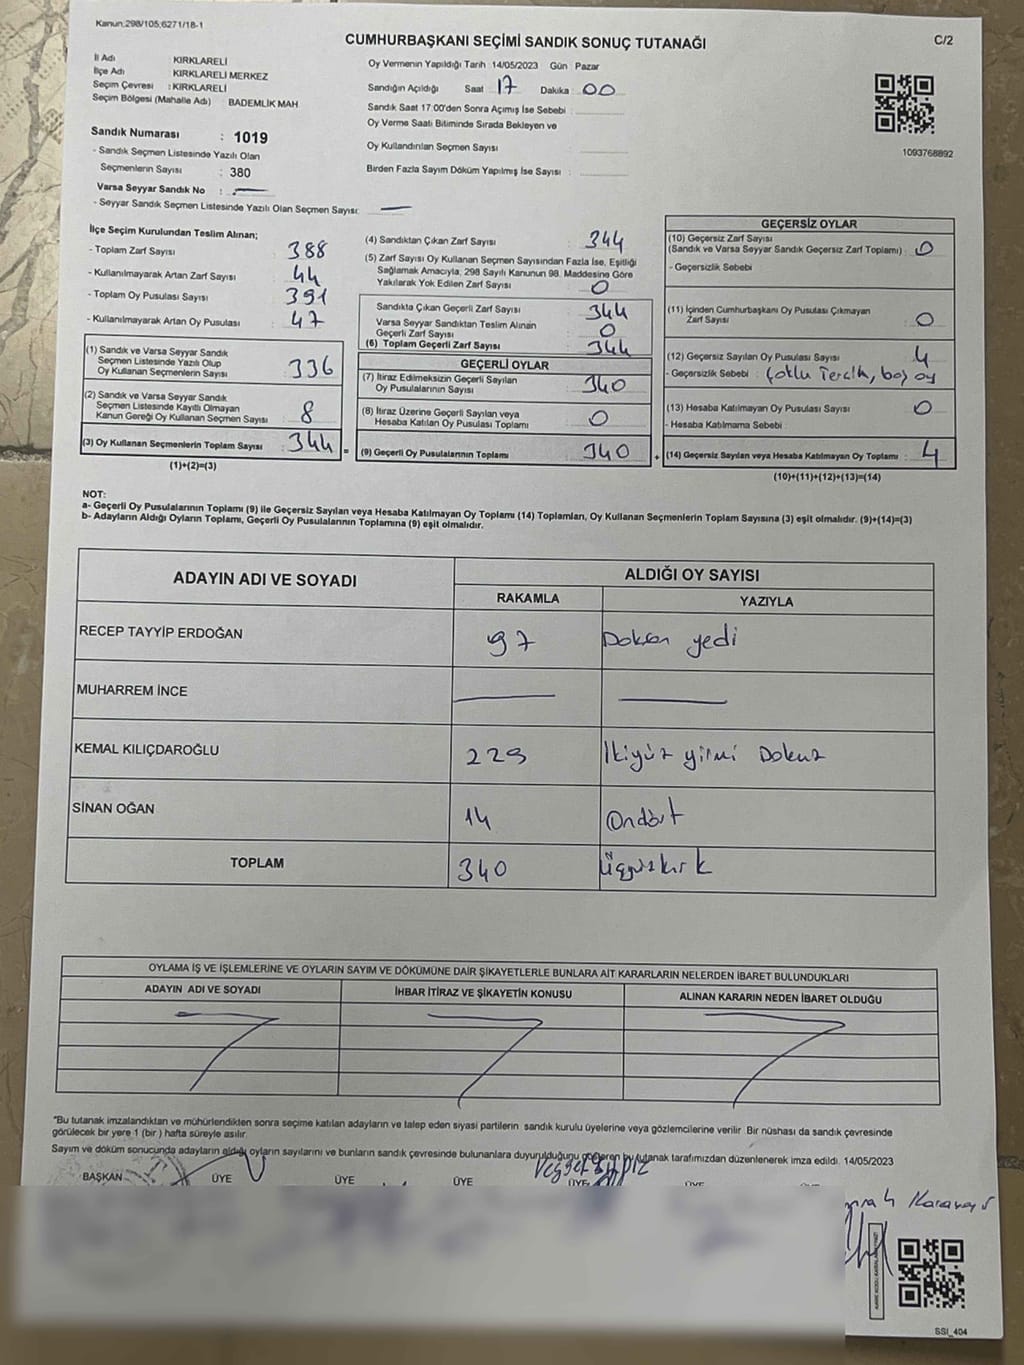 Kanun:298/105;6271/18-1
C/2
CUMHURBAŞKANI SEÇİMİ SANDIK SONUÇ TUTANAĞI
İl Adı : KIRKLARELİ
İlçe Adı : KIRKLARELİ MERKEZ
Seçim Çevresi : KIRKLARELİ
Seçim Bölgesi (Mahalle Adı) BADEMLİK MAH
Sandık Numarası : 1019
- Sandık Seçmen Listesinde Yazılı Olan
Seçmenlerin Sayısı : 380
Varsa Seyyar Sandık No :
- Seyyar Sandık Seçmen Listesinde Yazılı Olan Seçmen Sayısı:
Oy Vermenin Yapıldığı Tarih :14/05/2023 Gün : Pazar
Sandığın Açıldığı Saat 17 Dakika : 00
Sandık Saat 17:00'den Sonra Açımış İse Sebebi :
Oy Verme Saati Bitiminde Sırada Bekleyen ve
Oy Kullandırılan Seçmen Sayısı
Birden Fazla Sayım Döküm Yapılmış İse Sayısı :
1093768892
İlçe Seçim Kurulundan Teslim Alınan;
- Toplam Zarf Sayısı : 388
- Kullanılmayarak Artan Zarf Sayısı : 44
- Toplam Oy Pusulası Sayısı : 391
- Kullanılmayarak Artan Oy Pusulası : 47
(1) Sandık ve Varsa Seyyar Sandık
Seçmen Listesinde Yazılı Olup
Oy Kullanan Seçmenlerin Sayısı : 336
(2) Sandık ve Varsa Seyyar Sandık
Seçmen Listesinde Kayıtlı Olmayan
Kanun Gereği Oy Kullanan Seçmen Sayısı : 8
(3) Oy Kullanan Seçmenlerin Toplam Sayısı : 344
(1)+(2)=(3)
(4) Sandıktan Çıkan Zarf Sayısı : 344
(5) Zarf Sayısı Oy Kullanan Seçmen Sayısından Fazla İse, Eşitliği
Sağlamak Amacıyla, 298 Sayılı Kanunun 98. Maddesine Göre
Yakılarak Yok Edilen Zarf Sayısı : 0
Sandıkta Çıkan Geçerli Zarf Sayısı : 344
Varsa Seyyar Sandıktan Teslim Alınan
Geçerli Zarf Sayısı : 0
(6) Toplam Geçerli Zarf Sayısı : 344
GEÇERLİ OYLAR
(7) İtiraz Edilmeksizin Geçerli Sayılan
Oy Pusulalarının Sayısı : 340
(8) İtiraz Üzerine Geçerli Sayılan veya
Hesaba Katılan Oy Pusulası Toplamı : 0
= (9) Geçerli Oy Pusulalarının Toplamı : 340
GEÇERSİZ OYLAR
(10) Geçersiz Zarf Sayısı
(Sandık ve Varsa Seyyar Sandık Geçersiz Zarf Toplamı) : 0
- Geçersizlik Sebebi :
(11) İçinden Cumhurbaşkanı Oy Pusulası Çıkmayan
Zarf Sayısı : 0
(12) Geçersiz Sayılan Oy Pusulası Sayısı : 4
- Geçersizlik Sebebi : Çoklu Tercih, boş oy
(13) Hesaba Katılmayan Oy Pusulası Sayısı : 0
- Hesaba Katılmama Sebebi :
+ (14) Geçersiz Sayılan veya Hesaba Katılmayan Oy Toplamı : 4
(10)+(11)+(12)+(13)=(14)
NOT:
a- Geçerli Oy Pusulalarının Toplamı (9) ile Geçersiz Sayılan veya Hesaba Katılmayan Oy Toplamı (14) Toplamları, Oy Kullanan Seçmenlerin Toplam Sayısına (3) eşit olmalıdır. (9)+(14)=(3)
b- Adayların Aldığı Oyların Toplamı, Geçerli Oy Pusulalarının Toplamına (9) eşit olmalıdır.
ADAYIN ADI VE SOYADI ALDIĞI OY SAYISI
RAKAMLA YAZIYLA
RECEP TAYYİP ERDOĞAN 97 Doksan yedi
MUHARREM İNCE
KEMAL KILIÇDAROĞLU 229 İkiyüz yirmi Dokuz
SİNAN OĞAN 14 Ondört
TOPLAM 340 Üçyüzkırk
OYLAMA İŞ VE İŞLEMLERİNE VE OYLARIN SAYIM VE DÖKÜMÜNE DAİR ŞİKAYETLERLE BUNLARA AİT KARARLARIN NELERDEN İBARET BULUNDUKLARI
ADAYIN ADI VE SOYADI İHBAR İTİRAZ VE ŞİKAYETİN KONUSU ALINAN KARARIN NEDEN İBARET OLDUĞU
*Bu tutanak imzalandıktan ve mühürlendikten sonra seçime katılan adayların ve talep eden siyasi partilerin sandık kurulu üyelerine veya gözlemcilerine verilir. Bir nüshası da sandık çevresinde
görülecek bir yere 1 (bir) hafta süreyle asılır.
Sayım ve döküm sonucunda adayların aldığı oyların sayılarını ve bunların sandık çevresinde bulunanlara duyurulduğunu gösteren bu tutanak tarafımızdan düzenlenerek imza edildi. 14/05/2023
BAŞKAN ÜYE ÜYE ÜYE ÜYE ÜYE ÜYE
SSI_404